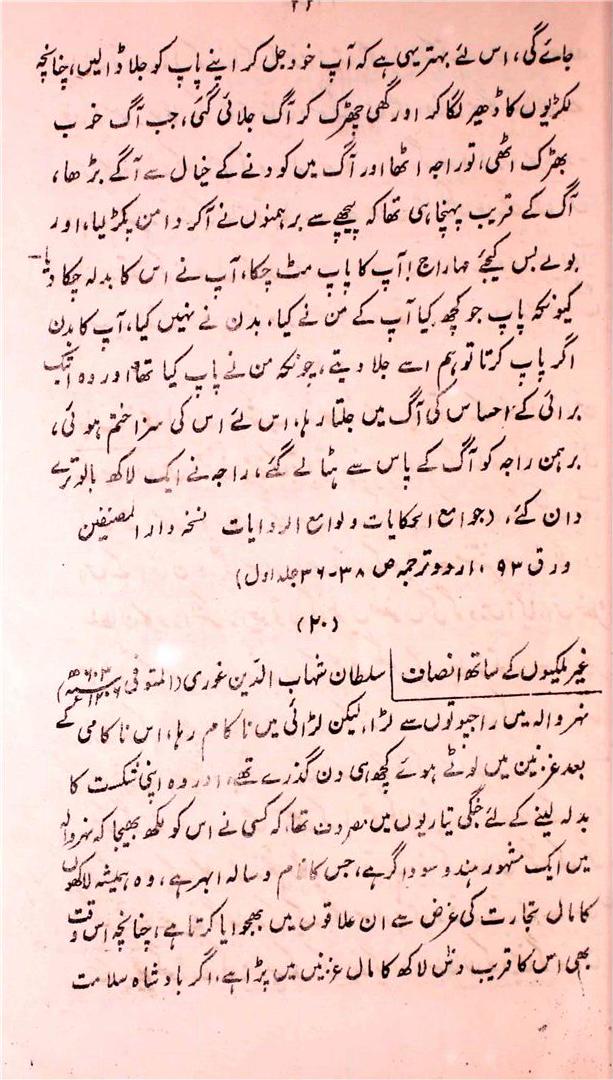 ۲۲
جائے گی، اس لئے بہتر یہی ہے کہ آپ خود جل کر اپنے پاپ کو جلا ڈالیں، چنانچہ
لکڑیوں کا ڈھیر لگا کر اور گھی چھڑک کر آگ جلائی گئی، جب آگ خوب
بھڑک اٹھی، تو راجہ اٹھا اور آگ میں کودنے کے خیال سے آگے بڑھا،
آگ کے قریب پہنچا ہی تھا کہ پیچھے سے برہمنوں نے آکر دامن پکڑ لیا، اور
بولے بس کیجئے مہاراج! آپ کا پاپ مٹ چکا، آپ نے اس کا بدلہ چکا دیا۔
کیونکہ پاپ جو کچھ کیا آپ کے من نے کیا، بدن نے نہیں کیا، آپ کا بدن
اگر پاپ کرتا تو ہم اسے جلا دیتے، چونکہ من نے پاپ کیا تھا اور وہ اب تک
برائی کے احساس کی آگ میں جلتا رہا، اس لئے اس کی سزا ختم ہوئی،
برہمن راجہ کو آگ کے پاس سے ہٹا لے گئے، راجہ نے ایک لاکھ بالوترے
دان کئے، (جوامع الحکایات و لوامع الروایات نسخہ دار المصنفین
ورق ۹۳، اردو ترجمہ ص ۳۸-۳۶ جلد اول)
(۲۰)
غیر ملکیوں کے ساتھ انصاف | سلطان شہاب الدین غوری (المتوفی ۶۰۳ھ ۱۲۰۶ء)
نہروالہ میں راجپوتوں سے لڑا، لیکن لڑائی میں ناکام رہا، اس ناکامی کے
بعد غزنین میں لوٹے ہوئے کچھ ہی دن گذرے تھے، اور وہ اپنی شکست کا
بدلہ لینے کے لئے جنگی تیاریوں میں مصروف تھا، کہ کسی نے اس کو لکھ بھیجا کہ نہروالہ
میں ایک مشہور ہندو سوداگر ہے، جس کا نام وسالہ ابہر ہے، وہ ہمیشہ لاکھوں
کا مال تجارت کی غرض سے ان علاقوں میں بھجوایا کرتا ہے، چنانچہ اس وقت
بھی اس کا قریب دس لاکھ کا مال غزنیں میں پڑا ہے، اگر بادشاہ سلامت